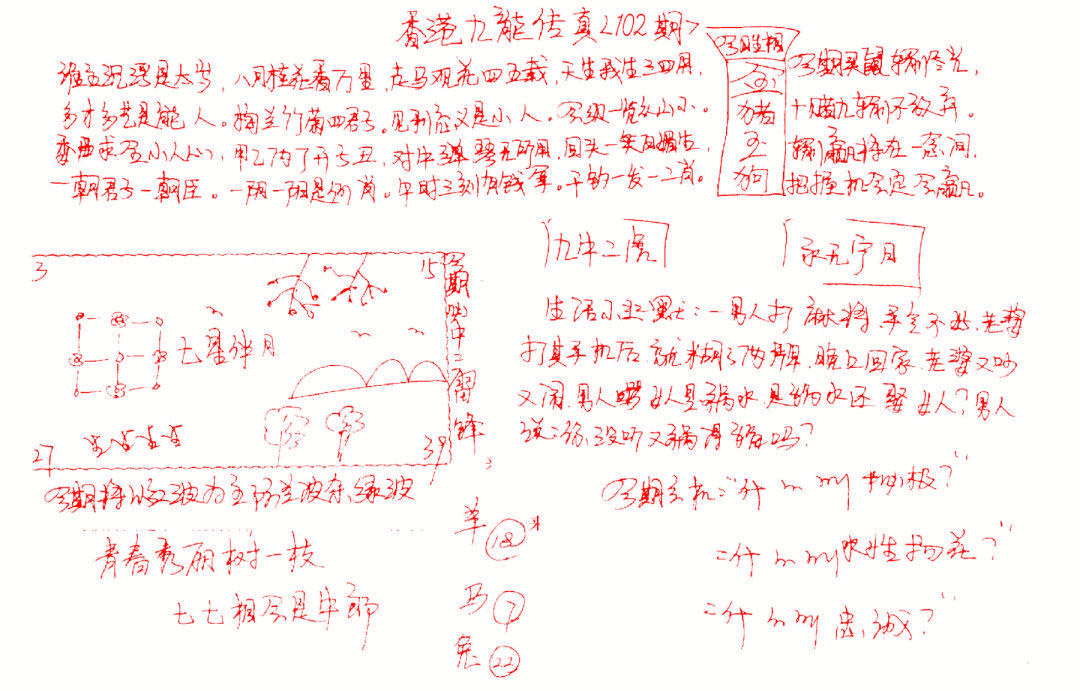 香港九龍传真<102期>
谁主沉浮是太岁，八月桂花香万里，走马观花四五载，天生我生三四用，
多才多艺是能人。梅兰竹菊四君子。见利忘义是小人。会当一览众山小。
委曲求全小人心，甲乙丙丁开子丑，对牛弹琴无所用，回头一笑百媚生，
一朝君子一朝臣。一阴一阳是何肖。午时三刻有钱军。千钧一发一二肖。
今日生相
金
猪
玉
狗
今期买鼠输倍光，
十赌九输不放弃，
输赢只在一念间，
把握机会定会赢。
九牛二虎
永无宁日
3
15
七星伴月
27
39
今期必中二前锋
今期将以红波为主防兰波杂绿波
生活小幽默：一男人打麻将，手气不此，老婆
打其手机后就糊了两牌，晚上回家，老婆又吵
又闹，男人骂女人是祸水，是祸水还娶女人？男人
说：你没听又祸得福吗？
今期玄机：什么叫极？
二什么叫水性扬花？
二什么叫忠诚？
青春秀丽树一枝
七七相会是牛郎
羊 18
马 7
兔 22